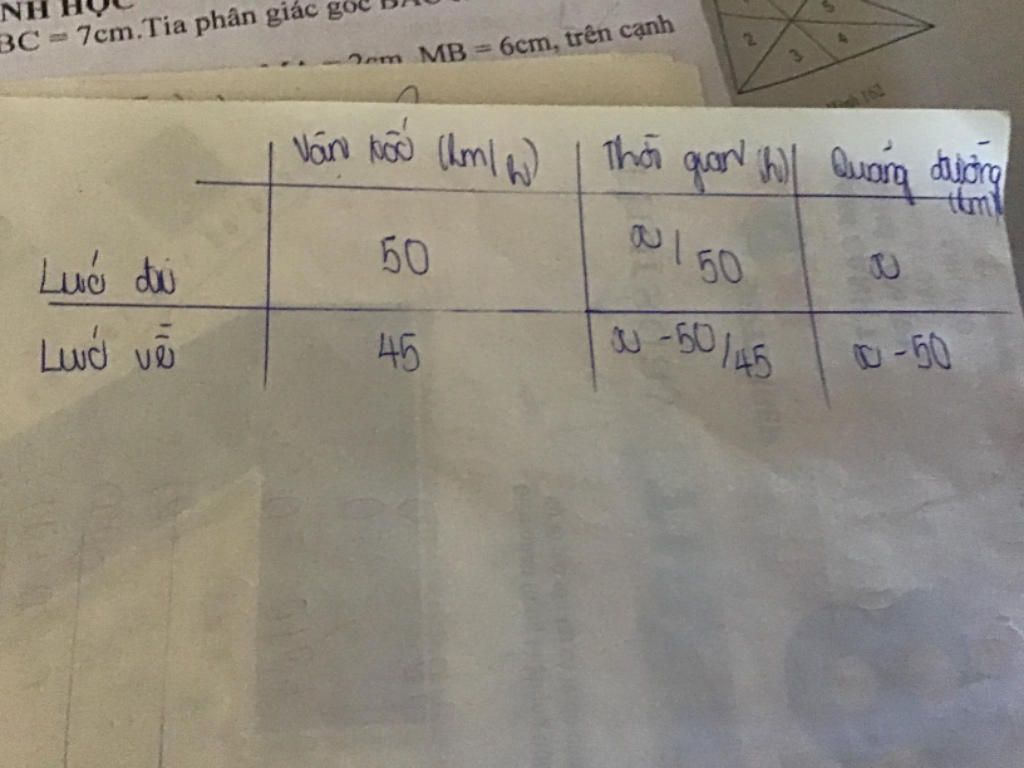 NH HỌC
BC = 7cm.Tia phân giác góc BAC
2cm MB = 6cm, trên cạnh
5
2 3 4
Hình 162
Vận tốc (km/h) Thời gian (h) Quãng đường (km)
Lúc đi 50 x/50 x
Lúc về 45 x - 50/45 x - 50